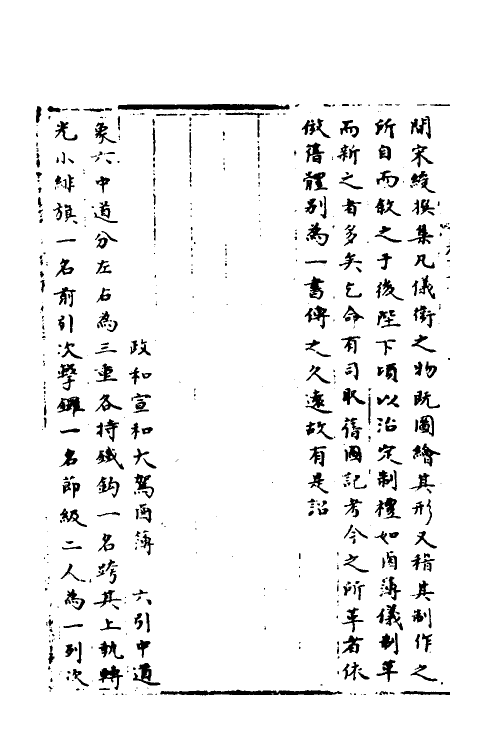 間宋綬撰集凡儀衛之物既圖繪其形又稽其制作之
所自而敘之于後陛下頃以治定制禮如鹵薄儀制革
而新之者多矣乞命有司取舊圖記考今之所革者依
倣舊體別為一書傳之久遠故有是詔
政和宣和大駕鹵薄 六引中道
象六中道分左右為三重各持鐵鈎一名跨其上執轉
光小緋旗一名前引次擊鑼一名節級二人為一列次